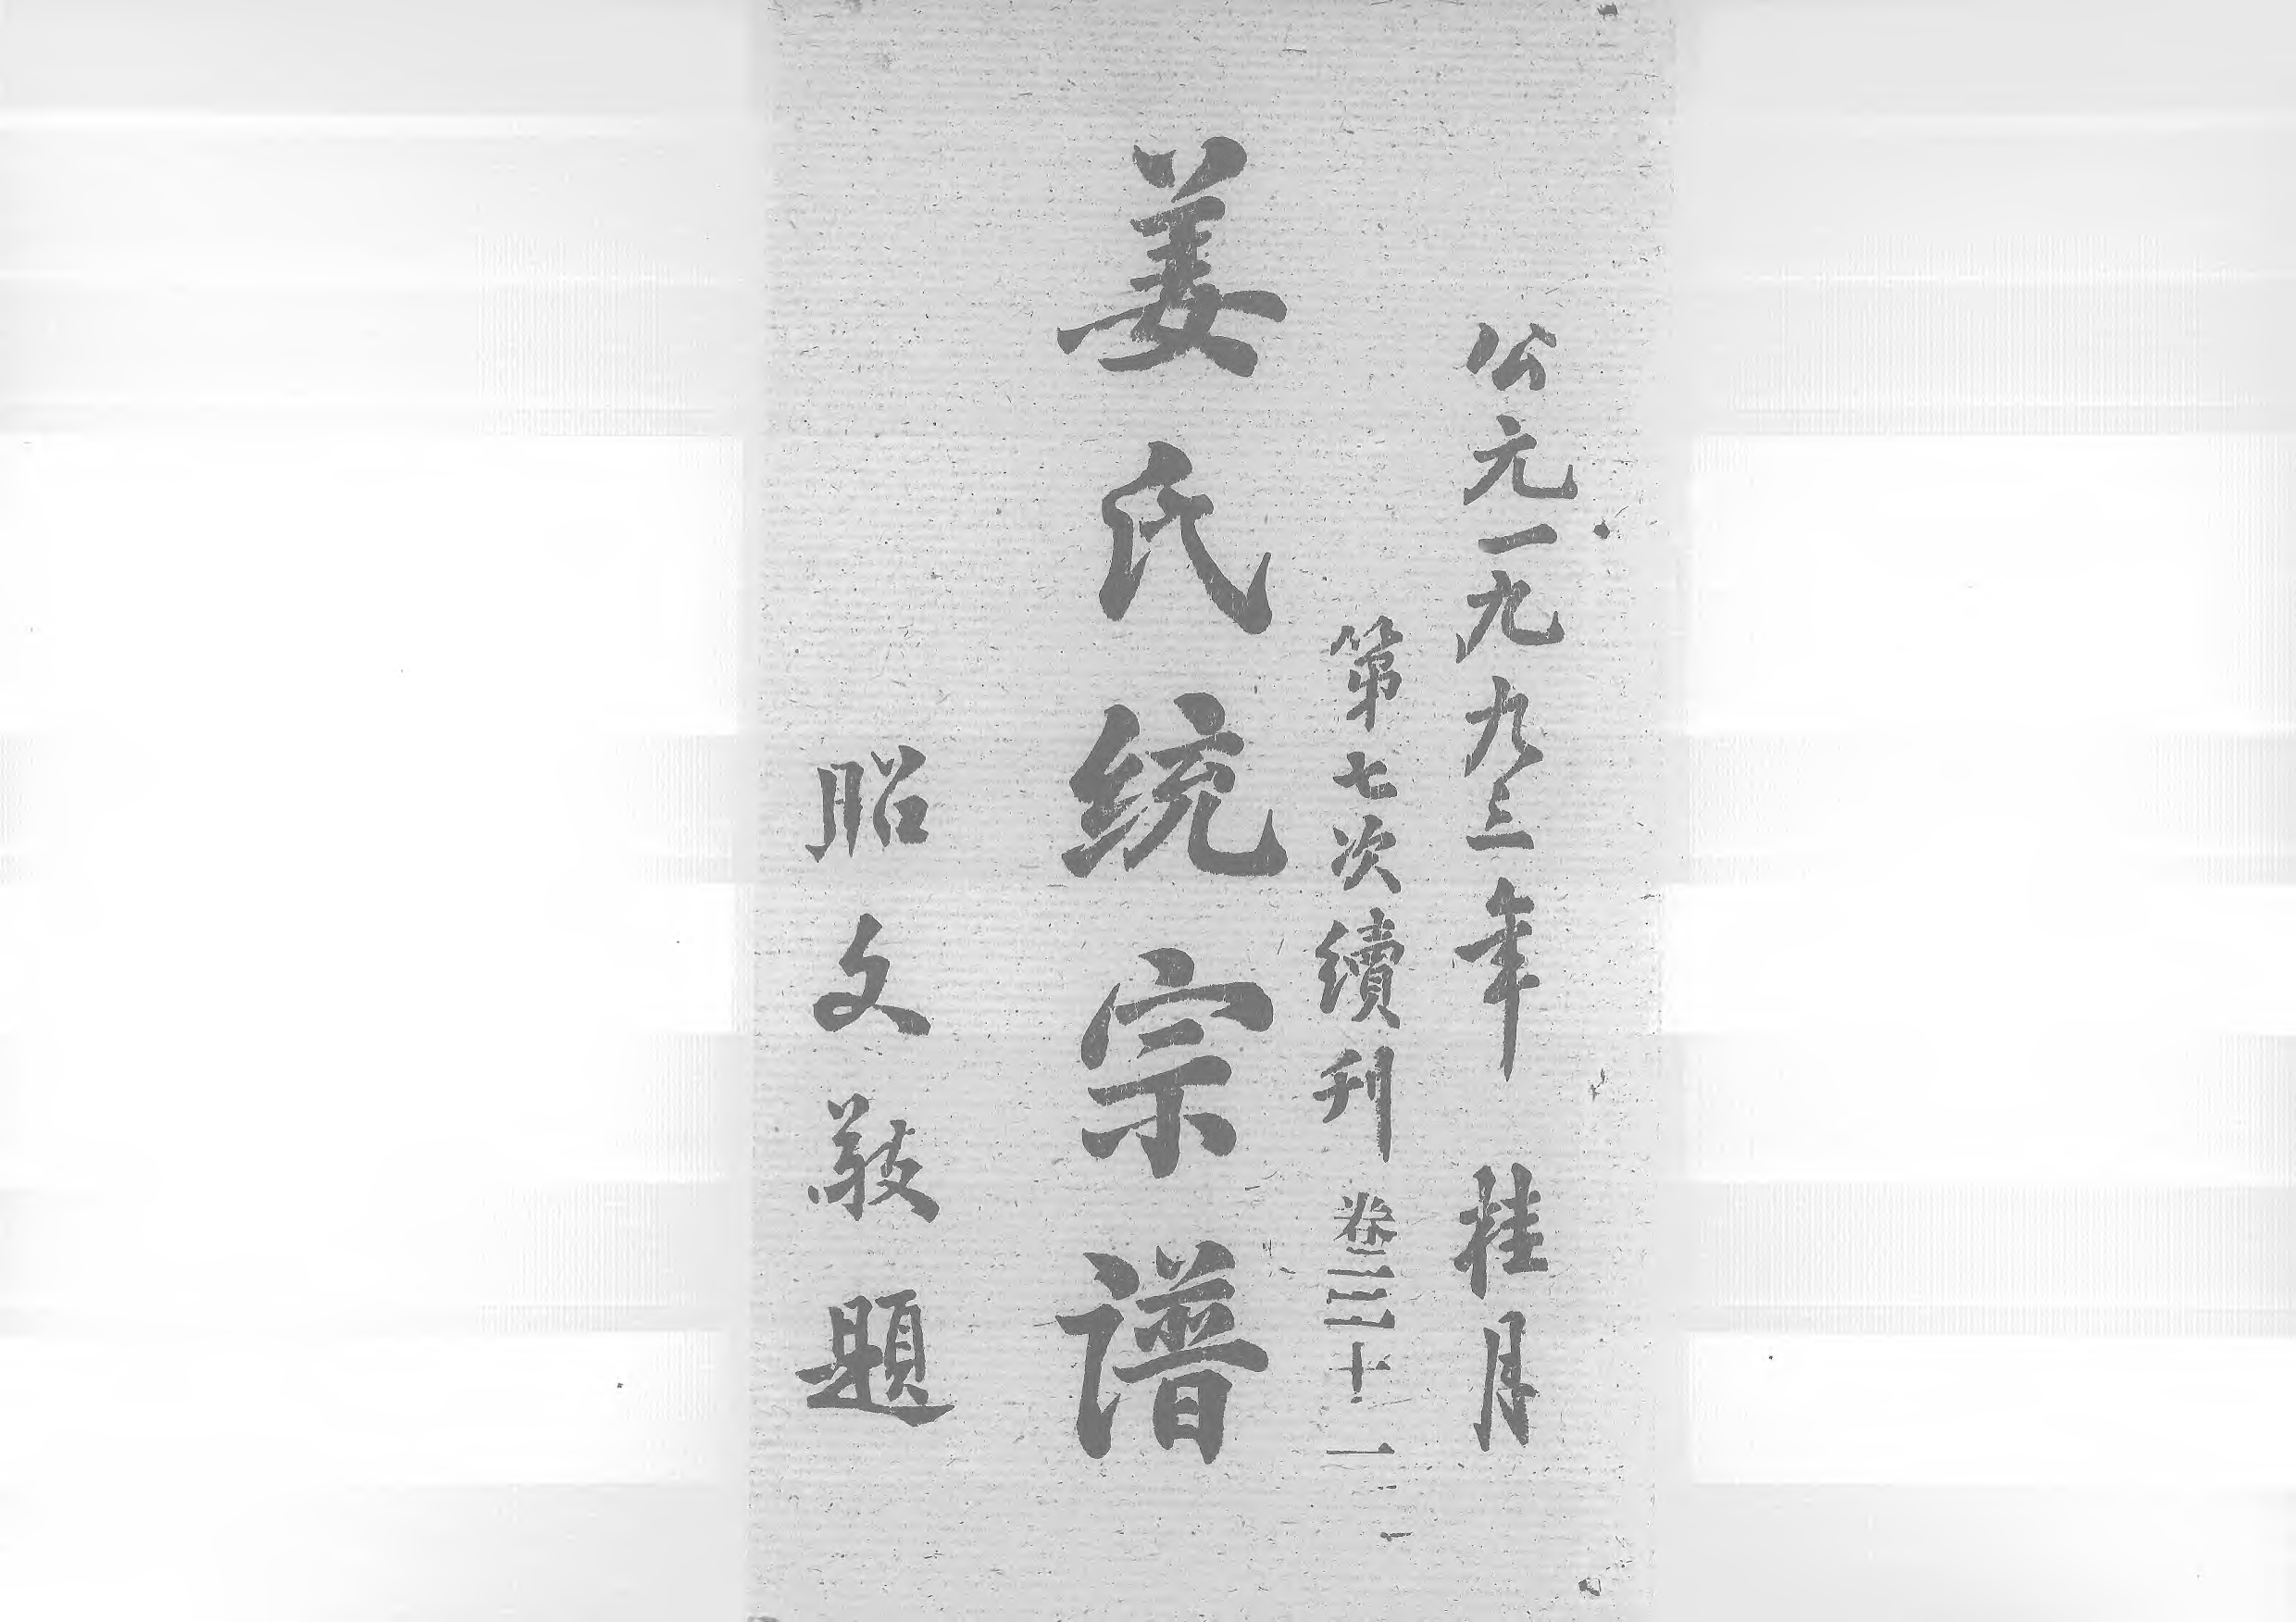 公元一九九三年 桂月
第七次續刊 卷三十一
姜氏统宗谱
昭文敬題